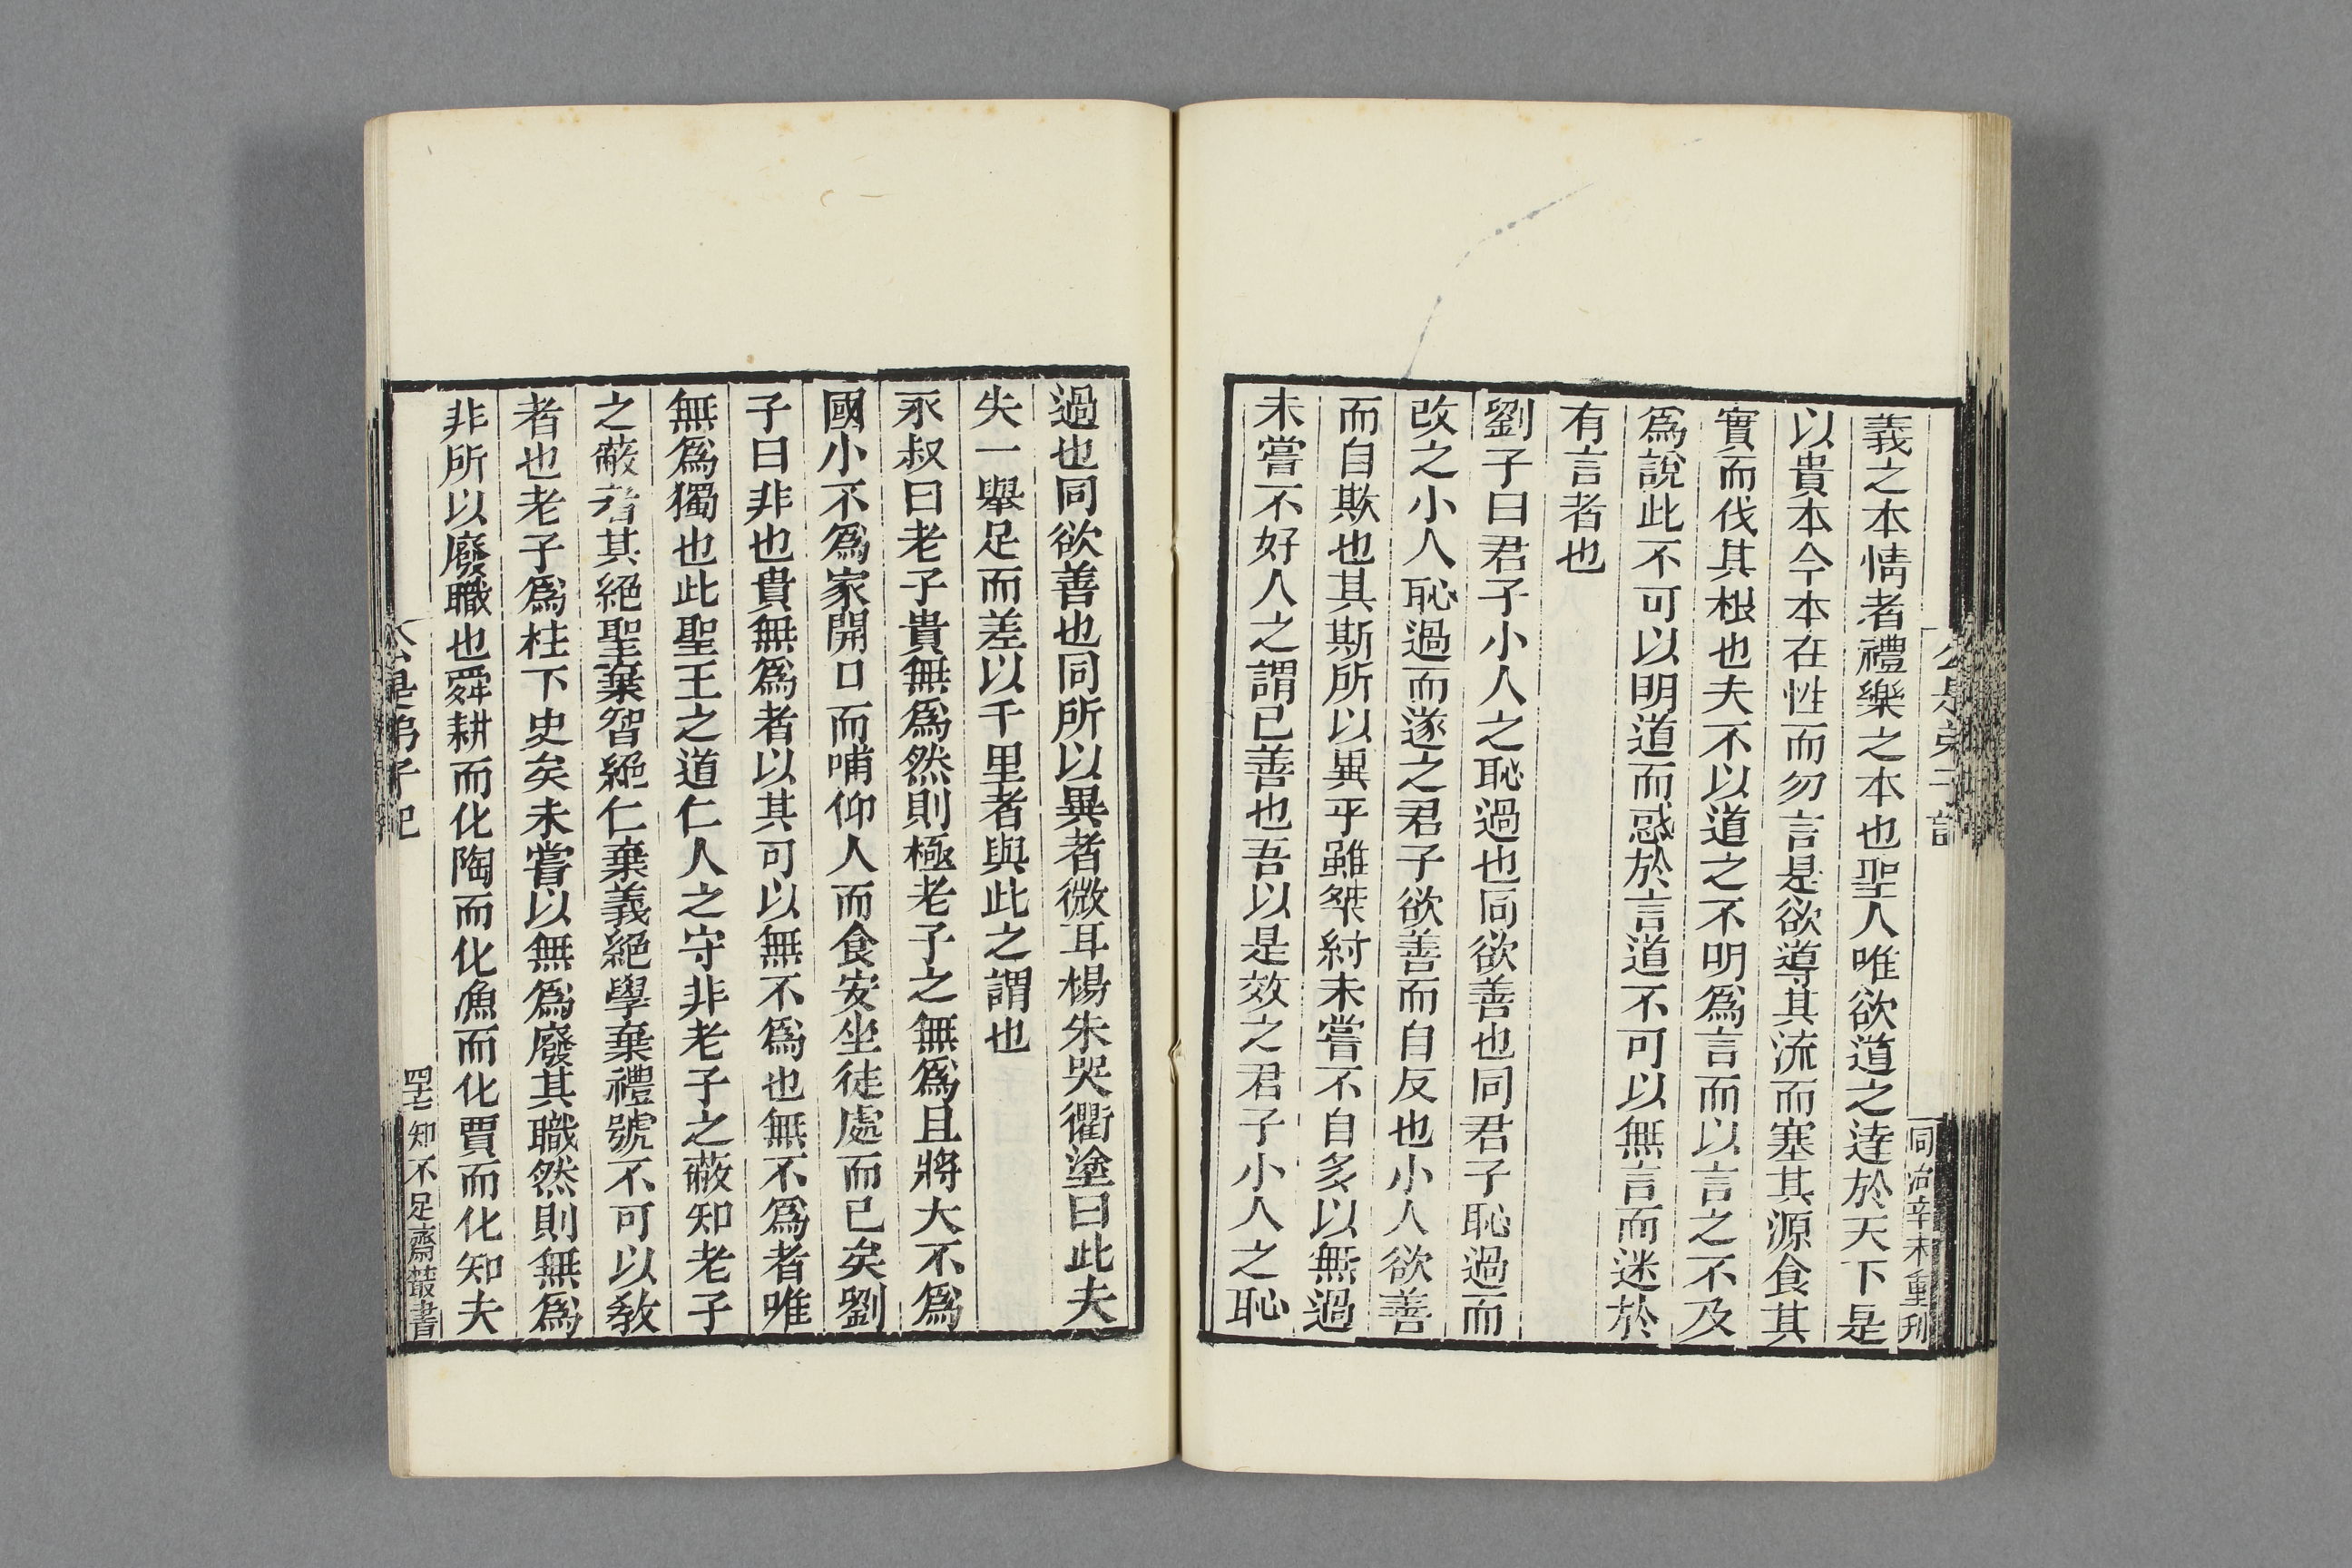 公是弟子記
同治辛未重刊
義之本情者禮樂之本也聖人唯欲道之逹於天下是
以貴本今本在性而勿言是欲導其流而塞其源食其
實而伐其根也夫不以道之不明爲言而以言之不及
爲說此不可以明道而惑於言道不可以無言而迷於
有言者也
劉子曰君子小人之恥過也同欲善也同君子恥過而
改之小人恥過而遂之君子欲善而自反也小人欲善
而自欺也其斯所以異乎雖桀紂未嘗不自多以無過
未嘗不好人之謂已善也吾以是效之君子小人之恥
過也同欲善也同所以異者微耳楊朱哭衢塗曰此夫
失一舉足而差以千里者與此之謂也
永叔曰老子貴無爲然則極老子之無爲且將大不爲
國小不爲家開口而哺仰人而食安坐徒處而已矣劉
子曰非也貴無爲者以其可以無不爲也無不爲者唯
無爲獨也此聖王之道仁人之守非老子之蔽知老子
之蔽者其絕聖棄智絕仁棄義絕學棄禮號不可以敎
者也老子爲柱下史矣未嘗以無爲廢其職然則無爲
非所以廢職也舜耕而化陶而化漁而化賈而化知夫
公是弟子記
四十七
知不足齋叢書